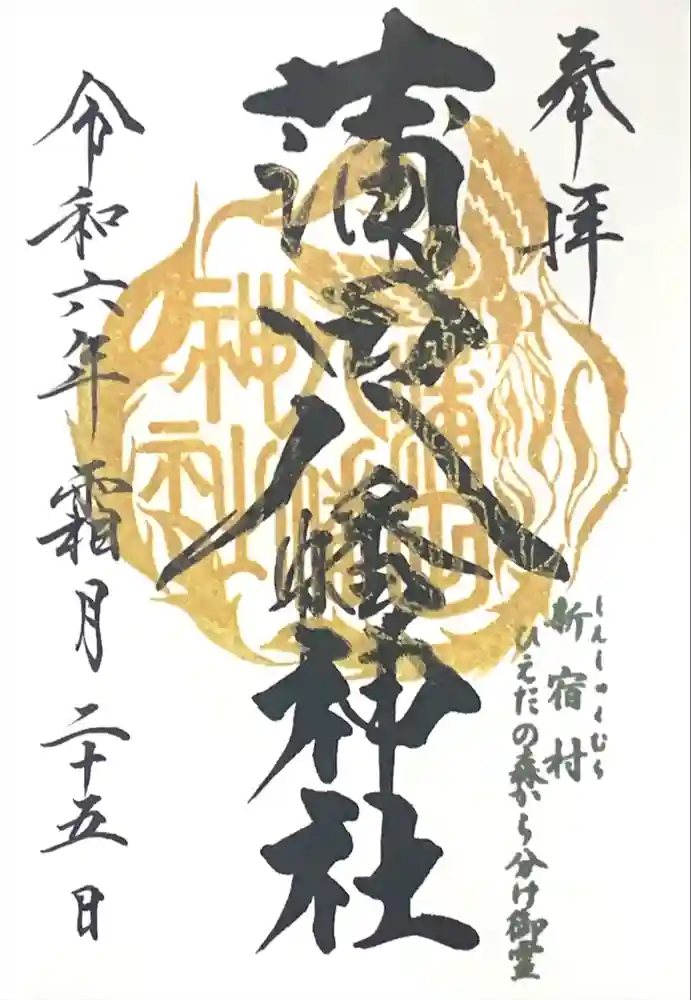 奉拝
しんしゅくむら
新宿村
ひえだの森から分け御霊
蒲田八幡神社
蒲田
八幡
神社
令和六年霜月二十五日